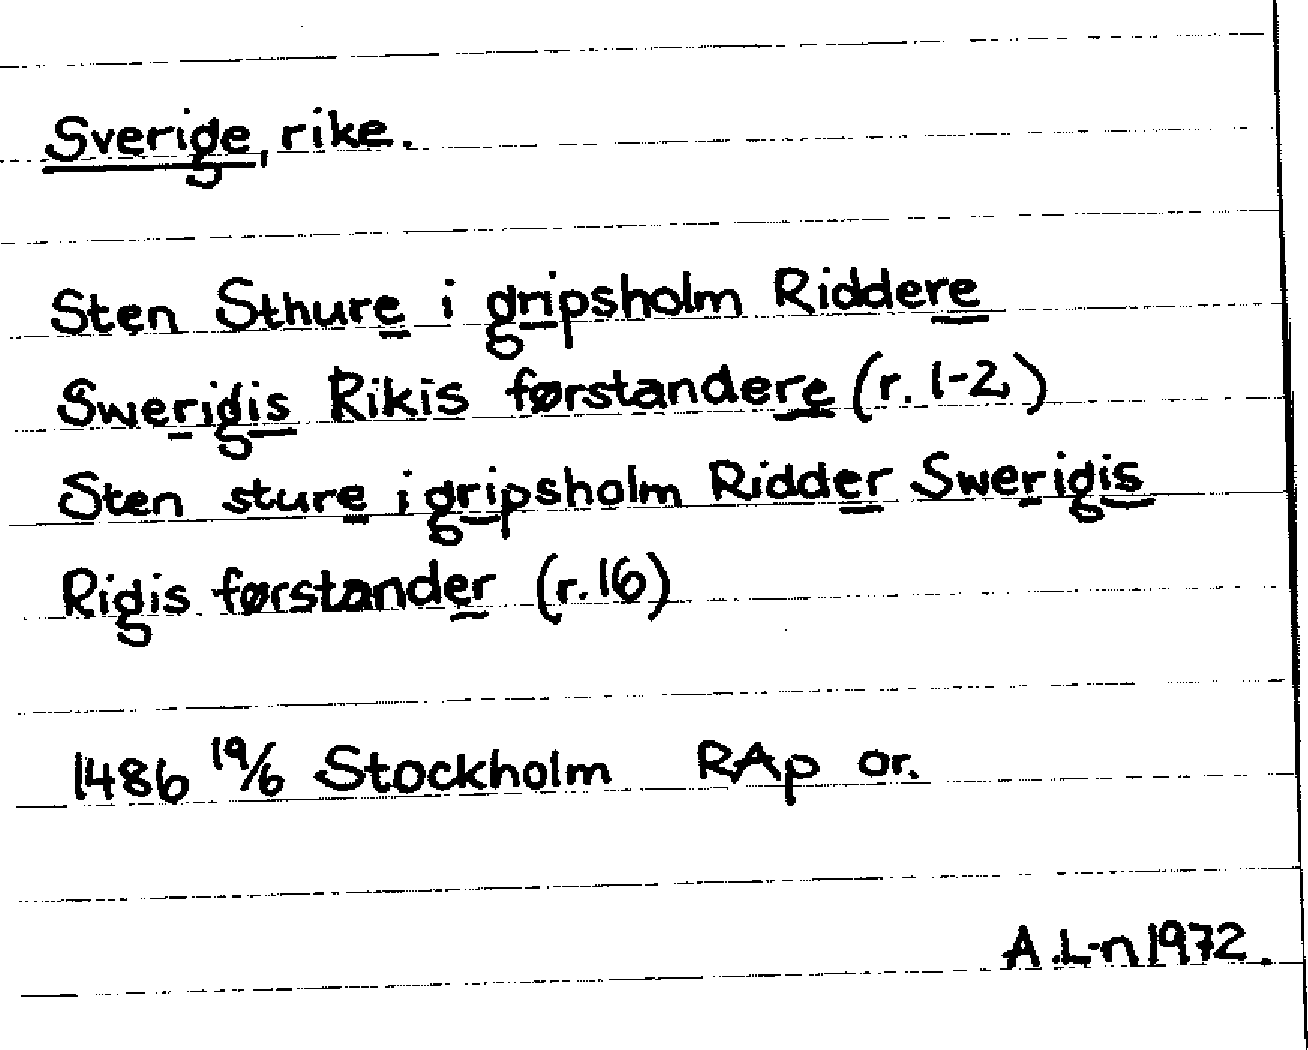 Sverige, rike.
Sten Sthure i gripsholm Riddere
Sweridis Rikis førstandere (r. 1-2)
Sten sture i gripsholm Ridder Swerigis
Rigis førstander (r. 16)
1486 19/6 Stockholm RAp or.
A.L-n 1972.